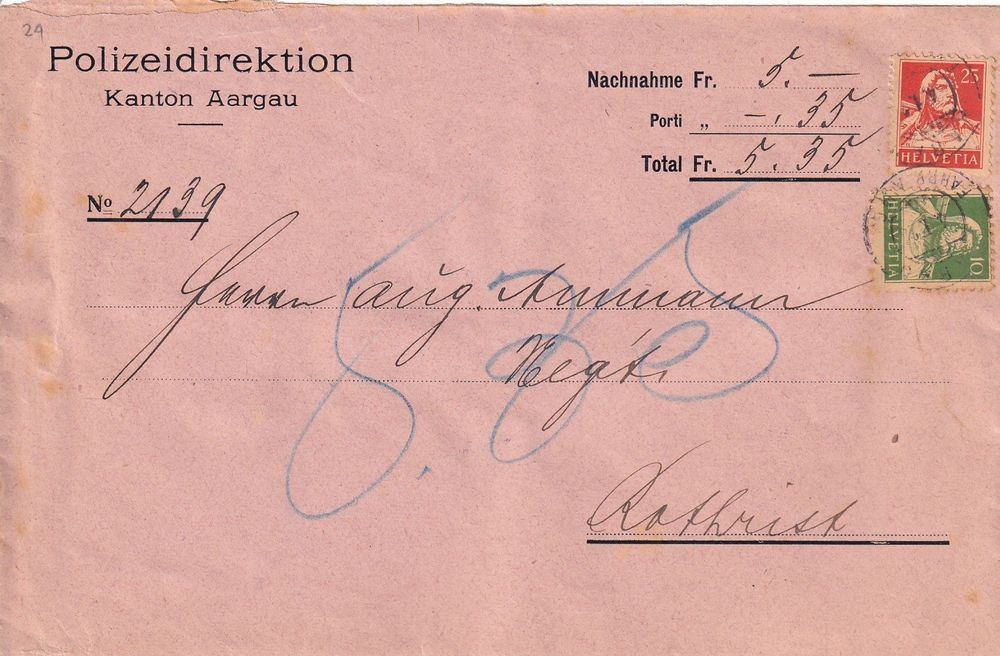 24
Polizeidirektion
Kanton Aargau
Nachnahme Fr. 5.—
Porti „ —.35
Total Fr. 5.35
No 2139
25
HELVETIA
10
HELVETIA
Herrn Aug. Ammann
Negt.
5.35
Rothrist